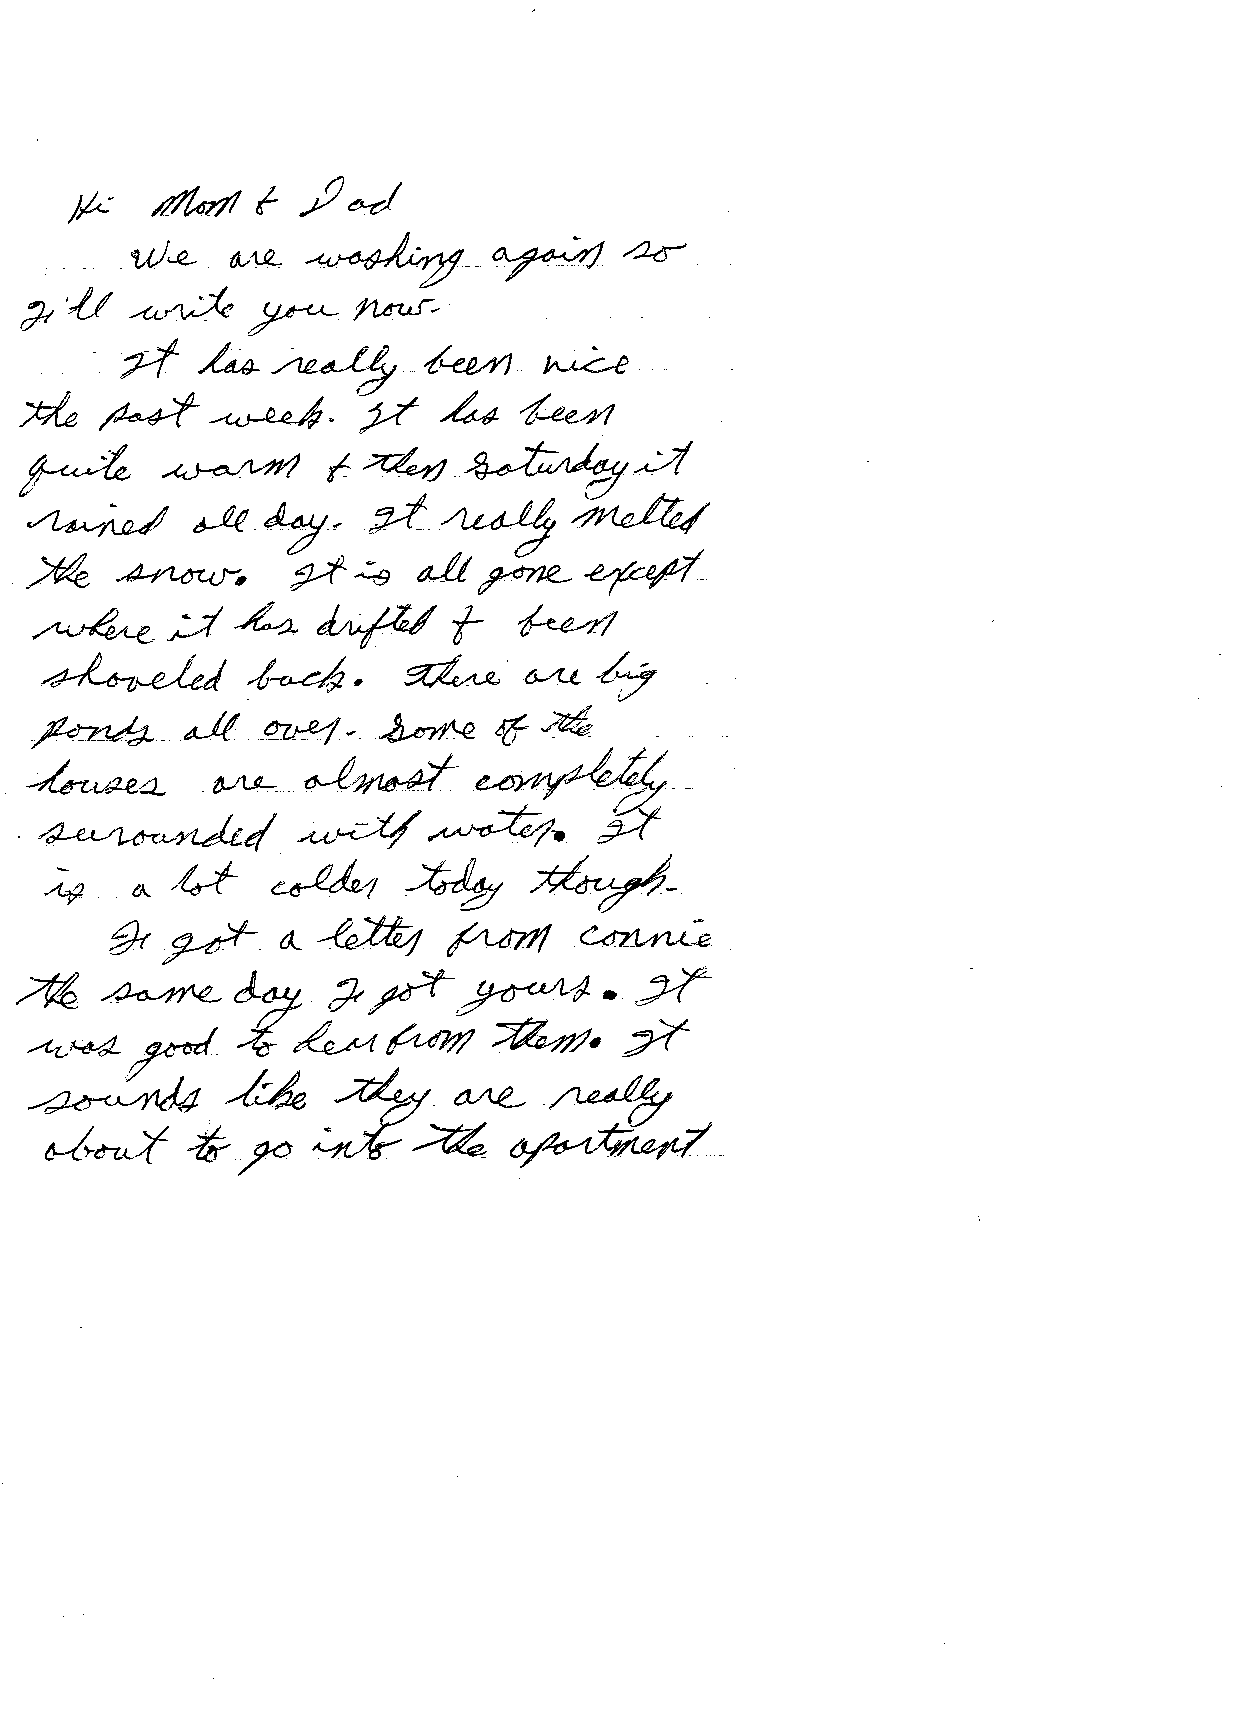 Hi Mom & Dad
We are washing again so
I'll write you now.
It has really been nice
the past week. It has been
quite warm & then Saturday it
rained all day. It really melted
the snow. It is all gone except
where it has drifted & been
shoveled back. There are big
ponds all over. Some of the
houses are almost completely
surounded with water. It
is a lot colder today though.
I got a letter from Connie
the same day I got yours. It
was good to hear from them. It
sounds like they are really
about to go into the apartment